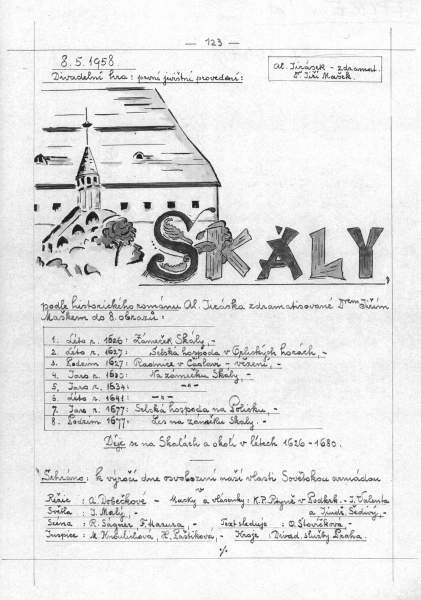 — 123 —
8. 5. 1958
Al. Jirásek - zdramat.
Dr Jiří Mašek.
Divadelní hra: první jevištní provedení:
SKÁLY,
podle historického románu Al. Jiráska zdramatisované Drem Jiřím
Maškem do 8. obrazů:
1. Léto r. 1626: Zámeček Skály, -
2. Léto r. 1627: Selská hospoda v horách, -
3. Podzim 1627: Radnice v Čáslavi - vězení, -
4. Jaro r. Na zámečku Skály, -
5. Jaro r. 1634: -"-
6. Léto r. 1641: -"-
7. Jaro r. 1677: Selská hospoda na Policku, -
8. Podzim 1677: Les na zámečku Skály. -
Děje se na Skalách a okolí v létech 1626 - 1680.
Sehráno: k výročí dne osvobození naší vlasti Sovětskou armádou
Režie: A. Dobečkové - Masky a vlásenky: K. P. v Podkrk. - J. Valenta
Světla: J. Malý, - a Jindř. Šedivý, -
Scéna: R. Ságner F. Hazura, - Text sleduje: O. Stovíčková, -
Inspice: M. H. Laštíková, - Kroje: Divad. služby Praha.
·/.